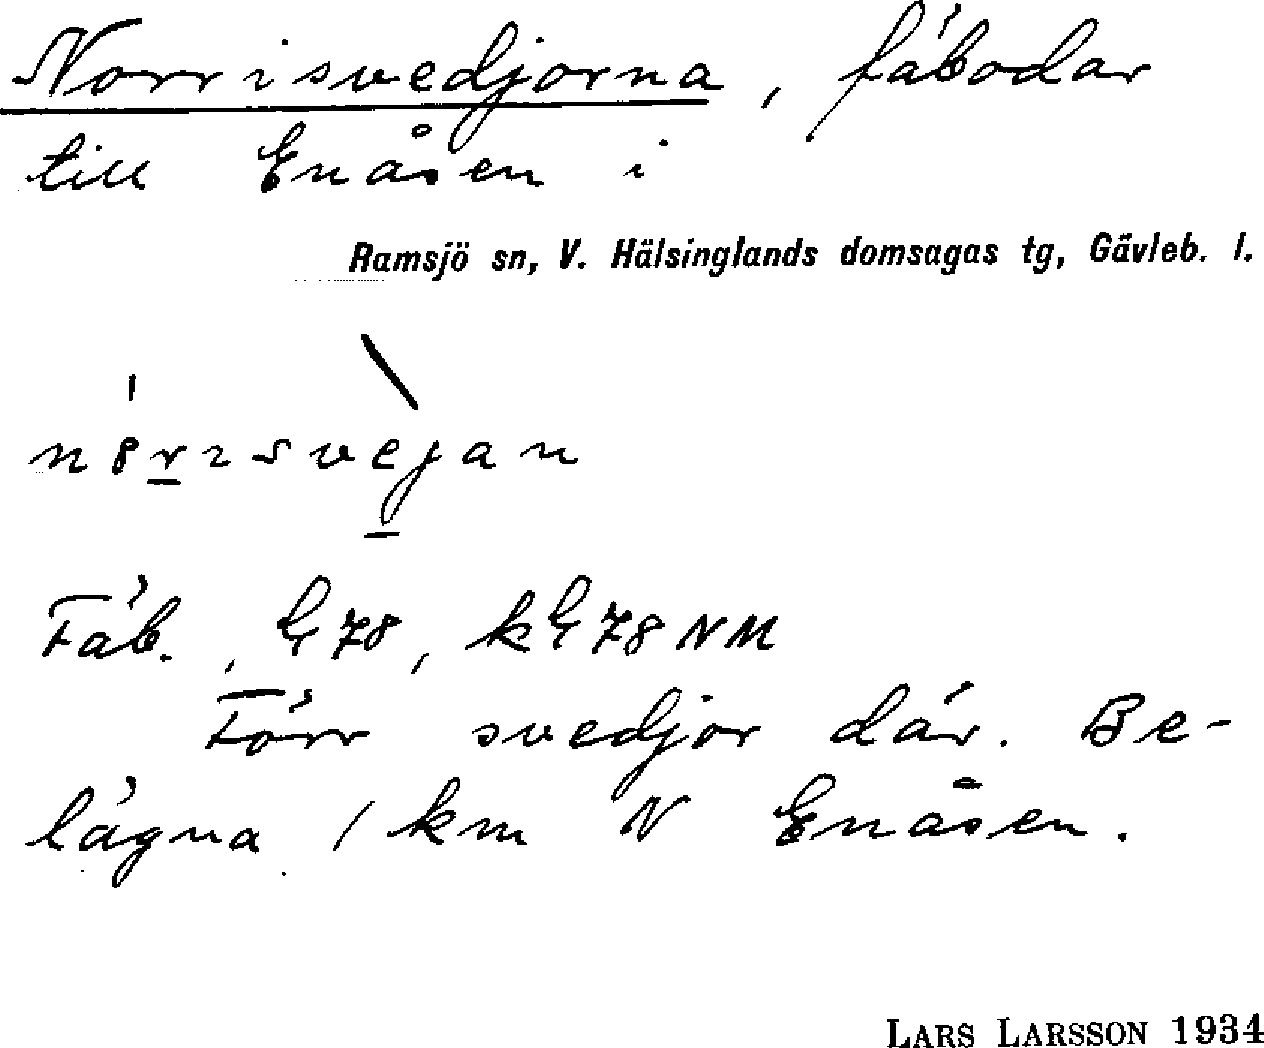 Norrisvedjorna, fäbodar
till Enåsen i
Ramsjö sn, V. Hälsinglands domsagas tg, Gävleb. l.
Fäb.
Förr svedjor där. Be-
lägna 1 km N Enåsen.
LARS LARSSON 1934